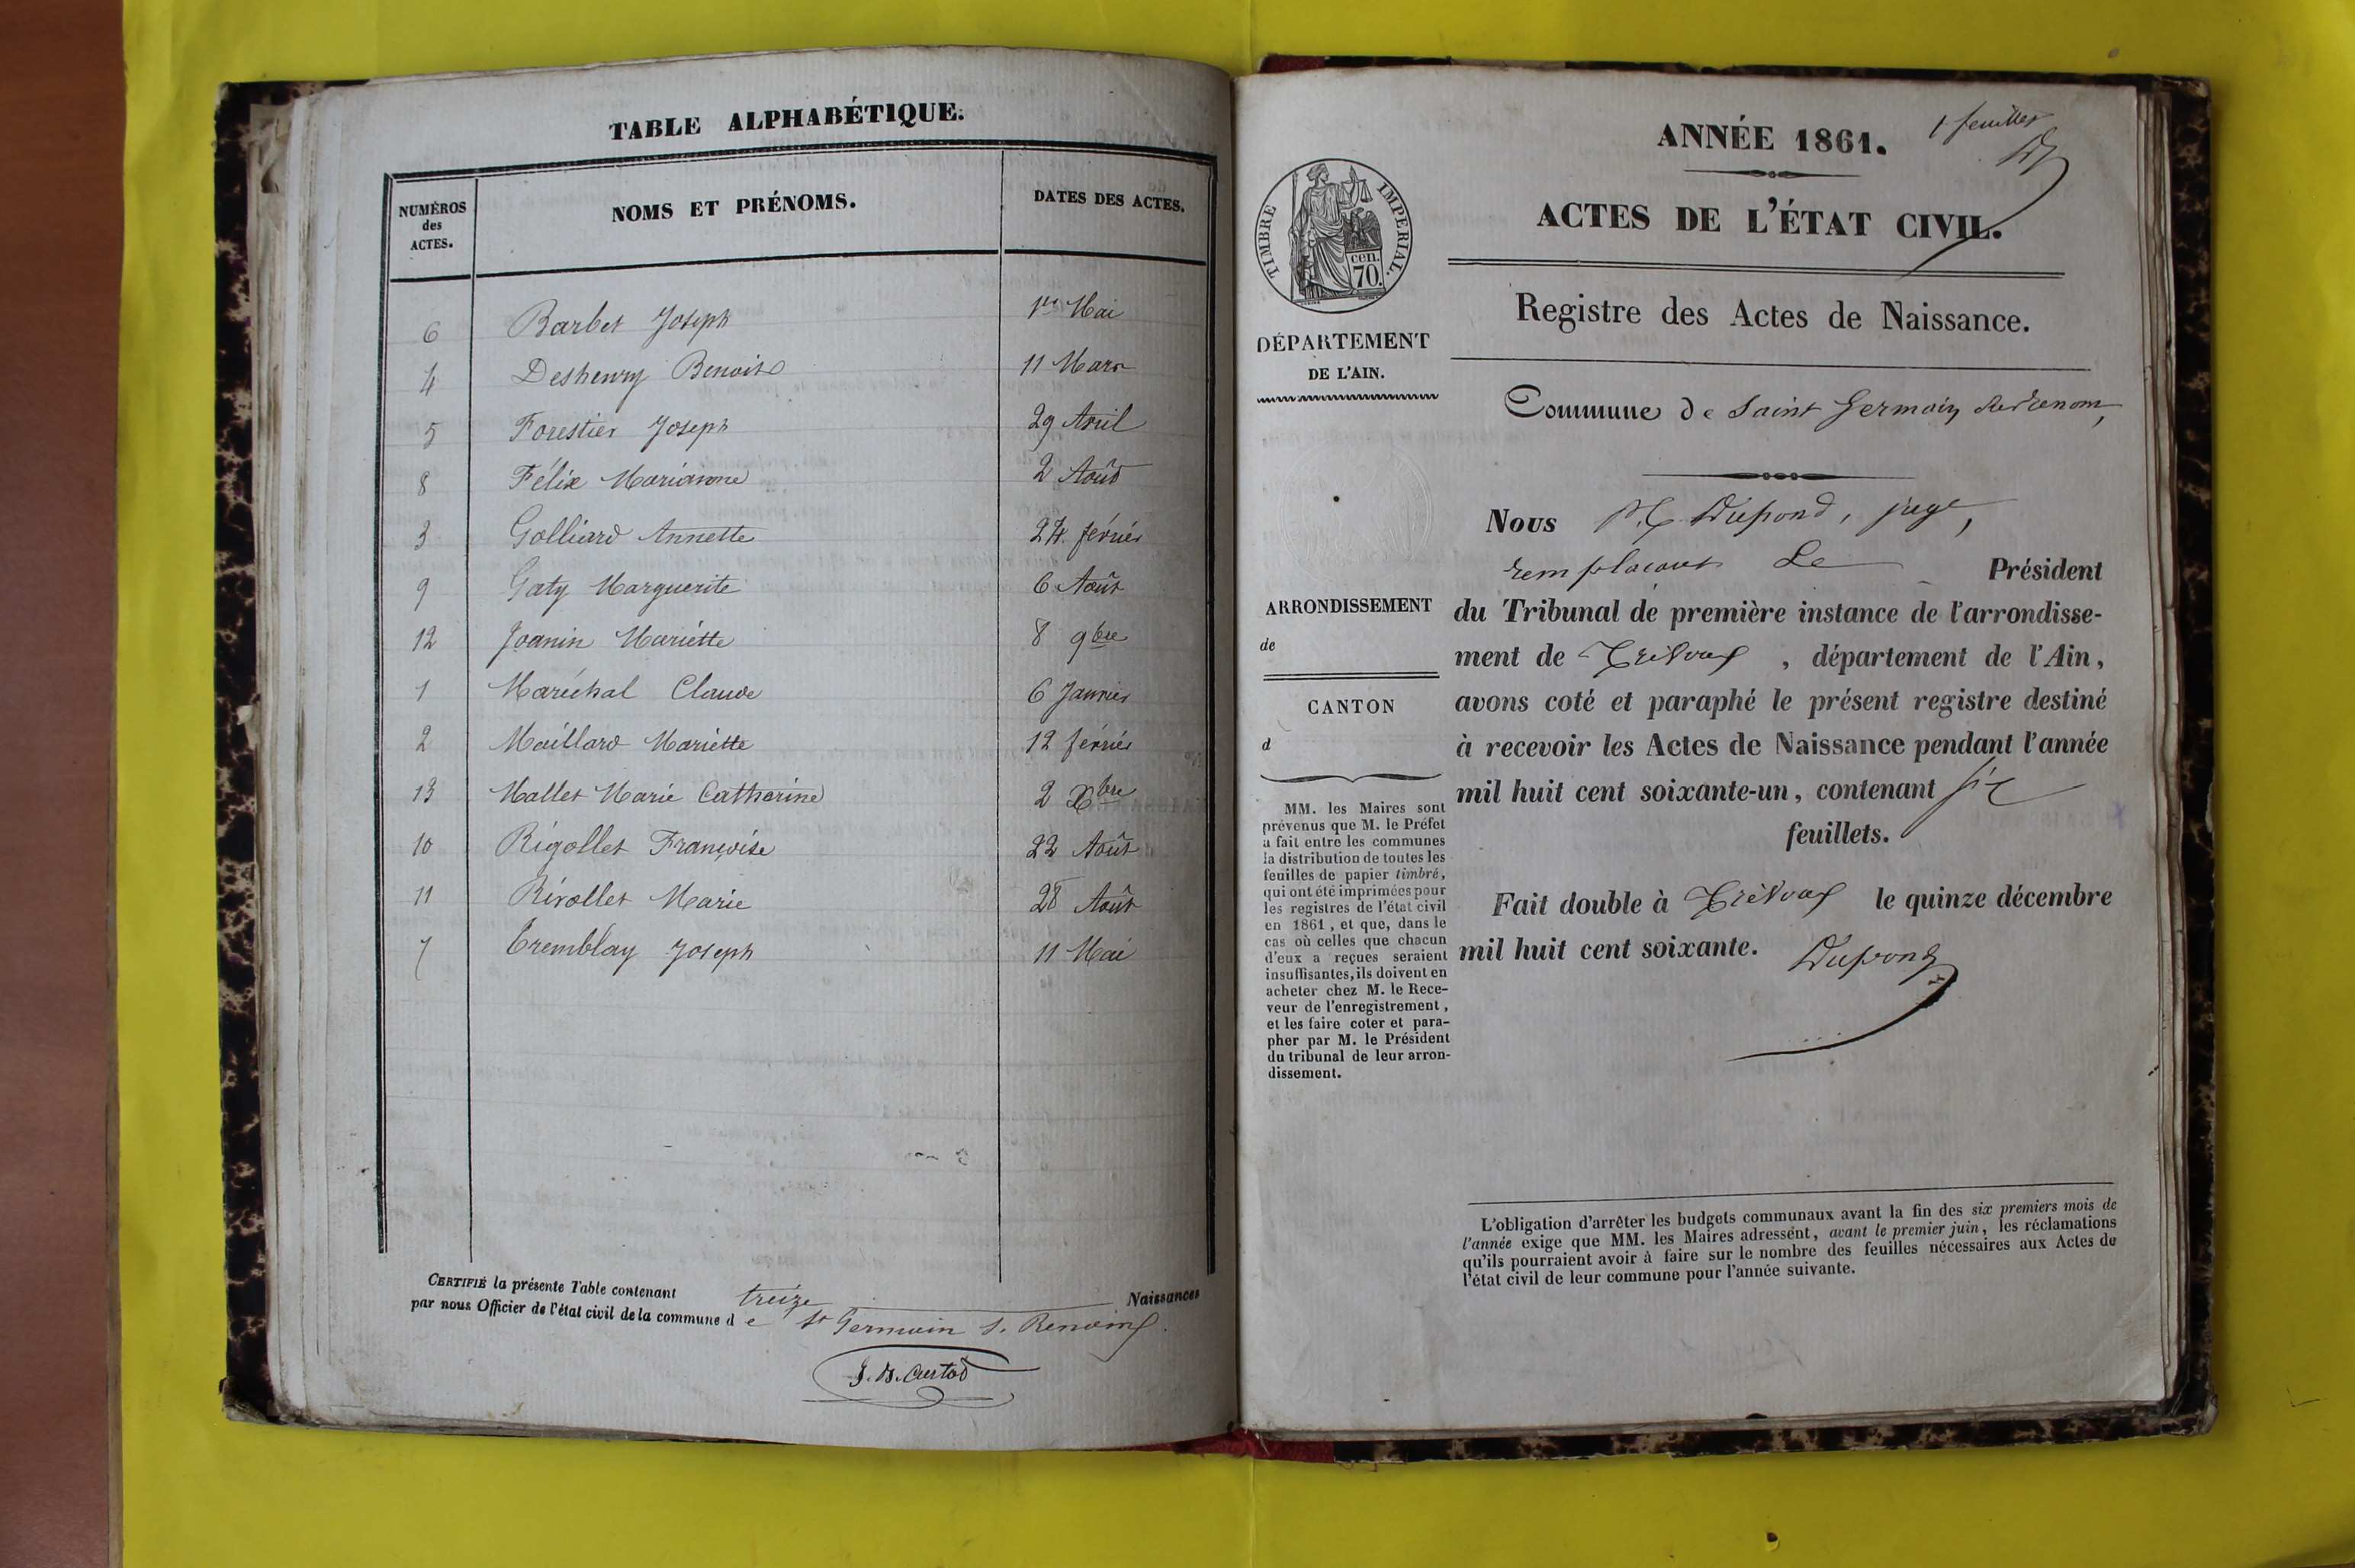 TABLE ALPHABÉTIQUE.
NUMÉROS des ACTES.
NOMS ET PRÉNOMS.
DATES DES ACTES.
6 Barbet Joseph 1er Mai
4 Deshenry Benoite 11 Mars
5 Forestier Joseph 29 Avril
8 Félix Marianne 2 Août
3 Golliard Annette 24 février
9 Gaty Marguerite 6 Août
12 Joanin Mariette 8 9bre
1 Maréchal Claude 6 Janvier
2 Maillard Mariette 12 février
13 Mallet Marie Catherine 2 Xbre
10 Rigollet Françoise 22 Août
11 Rivollet Marie 28 Août
7 Tremblay Joseph 11 Mai
CERTIFIÉ la présente Table contenant treize Naissances
par nous Officier de l'état civil de la commune d e St Germain s. Renom
J. B. Custod
1 feuillet
ANNÉE 1861.
ACTES DE L'ÉTAT CIVIL.
TIMBRE IMPERIAL.
cen.
70.
Registre des Actes de Naissance.
DÉPARTEMENT
DE L'AIN.
Commune de Saint Germain sur renom,
Nous Dupond, juge,
remplaçant Le Président
ARRONDISSEMENT
de
du Tribunal de première instance de l'arrondisse-
ment de Trévoux, département de l'Ain,
CANTON
d
avons coté et paraphé le présent registre destiné
à recevoir les Actes de Naissance pendant l'année
mil huit cent soixante-un, contenant six
feuillets.
Fait double à Trévoux le quinze décembre
mil huit cent soixante.
Dupond
MM. les Maires sont
prévenus que M. le Préfet
a fait entre les communes
la distribution de toutes les
feuilles de papier timbré,
qui ont été imprimées pour
les registres de l'état civil
en 1861, et que, dans le
cas où celles que chacun
d'eux a reçues seraient
insuffisantes, ils doivent en
acheter chez M. le Rece-
veur de l'enregistrement,
et les faire coter et para-
pher par M. le Président
du tribunal de leur arron-
dissement.
L'obligation d'arrêter les budgets communaux avant la fin des six premiers mois de
l'année exige que MM. les Maires adressent, avant le premier juin, les réclamations
qu'ils pourraient avoir à faire sur le nombre des feuilles nécessaires aux Actes de
l'état civil de leur commune pour l'année suivante.